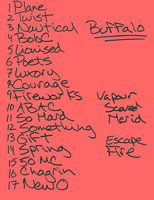 1 Plane
2 Twist
3 Nautical Buffalo
4 BobC
5 Cruised
6 Poets
7 Luxury
8 Courage
9 Fireworks Vapour
10 ABAC Scared
11 So Hard Merid
12 Something
13 Gift Escape
14 Spring Fire
15 50 MC
16 Chagrin
17 New O